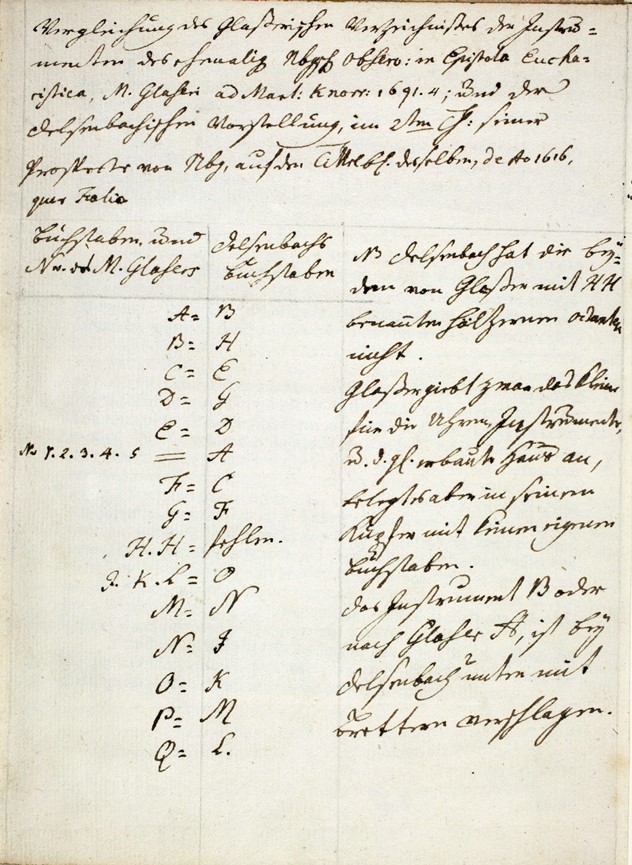 Vergleichung des Glaserischen Verzeichnisses der Instru=
menten des ehemalig Nbg Observ: in Epistola Eucha=
ristica, M. Glaseri ad Mart: Knorr: 1691. 4; und der
Delsenbachischen Vorstellung, im 2ten Th: seiner
Prospecte von Nbg, auf dem desselben, de Ao 1616,
quer Folio
Buchstaben und
Nr. des M. Glasers
Delsenbachs
Buchstaben
A = B
B = H
C = E
D = G
E = D
No 1. 2. 3. 4. 5 = A
F = C
G = F
H. H = fehlen.
J. K. L = O
M = N
N = J
O = K
P = M
Q = L.
NB Delsenbach hat die bey=
den von Glaser mit H H
benannten hölzernen
nicht.
Glaser giebt zwar das kleine
für die Uhren, Instrumente,
u. d. gl. erbaute Haus an,
belegts aber in seinem
Kupfer mit keinem eigenen
Buchstaben.
Das Instrument B oder
nach Glaser A, ist bey
Delsenbach unten mit
Brettern verschlagen.